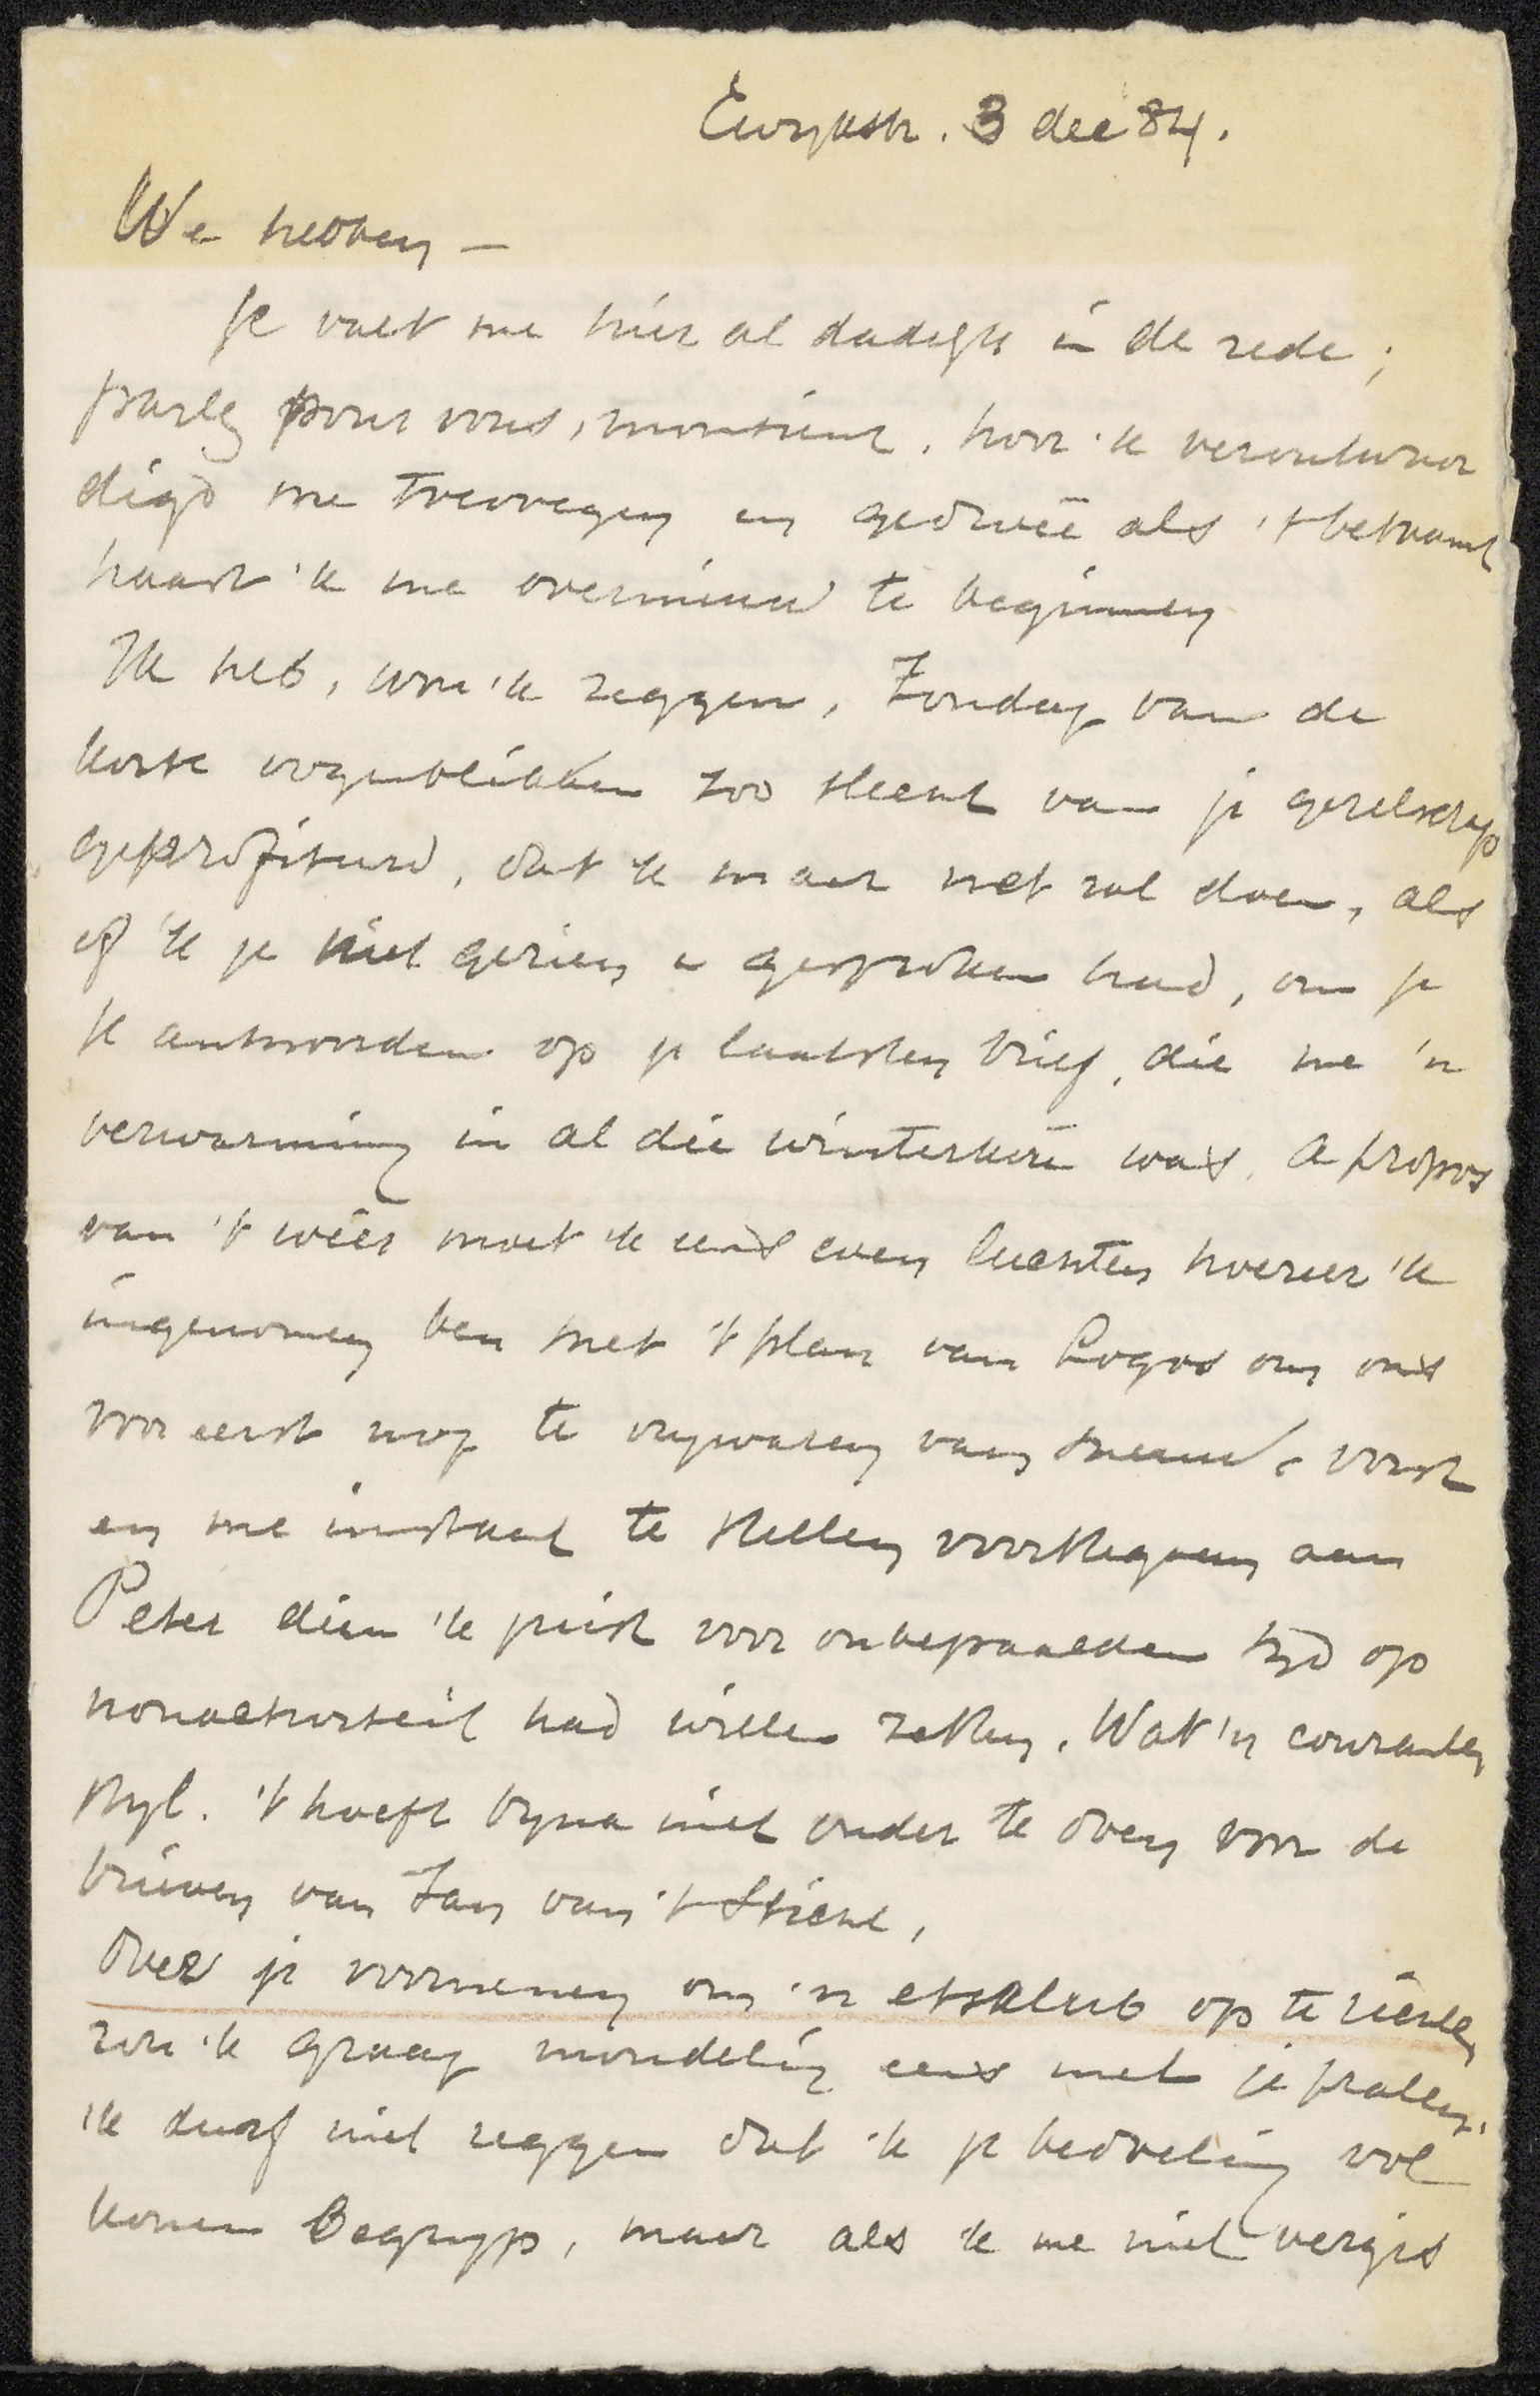 Ewijkstr. 3 dec 84.
We hebben —
Je valt me hier al dadelijk in de rede;
parlez pour vous, monsieur, hoor 'k verontwaar
digd me toevoegen en gedwee als 't betaamt
haast 'k me overnieuw te beginnen
Ik heb, wou 'k zeggen, Zondag van de
korte oogenblikken zoo slecht van je gezelschap
geprofiteerd, dat 'k maar net zal doen, als
of 'k je niet gezien e gesproken had, om je
te antwoorden op je laatsten brief, die me 'n
verwarming in al die winterkou was. A propos
van 't weer moet 'k eens even luchten hoezeer 'k
ingenomen ben met 't plan van Logos om ons
voor eerst nog te vrijwaren van sneeuw e vorst
en me instaat te stellen voorttegaan aan
Peter dien 'k juist voor onbepaalden tijd op
nonactiviteit had willen zetten. Wat 'n couranten
stijl. 't hoeft bijna niet onder te doen voor de
brieven van Jan van 't Sticht,
Over je voornemen om 'n etsklub op te richten
zou 'k graag mondeling eens met je praten.
'k durf niet zeggen dat 'k je bedoeling vol
komen begrijp, maar als 'k me niet vergis